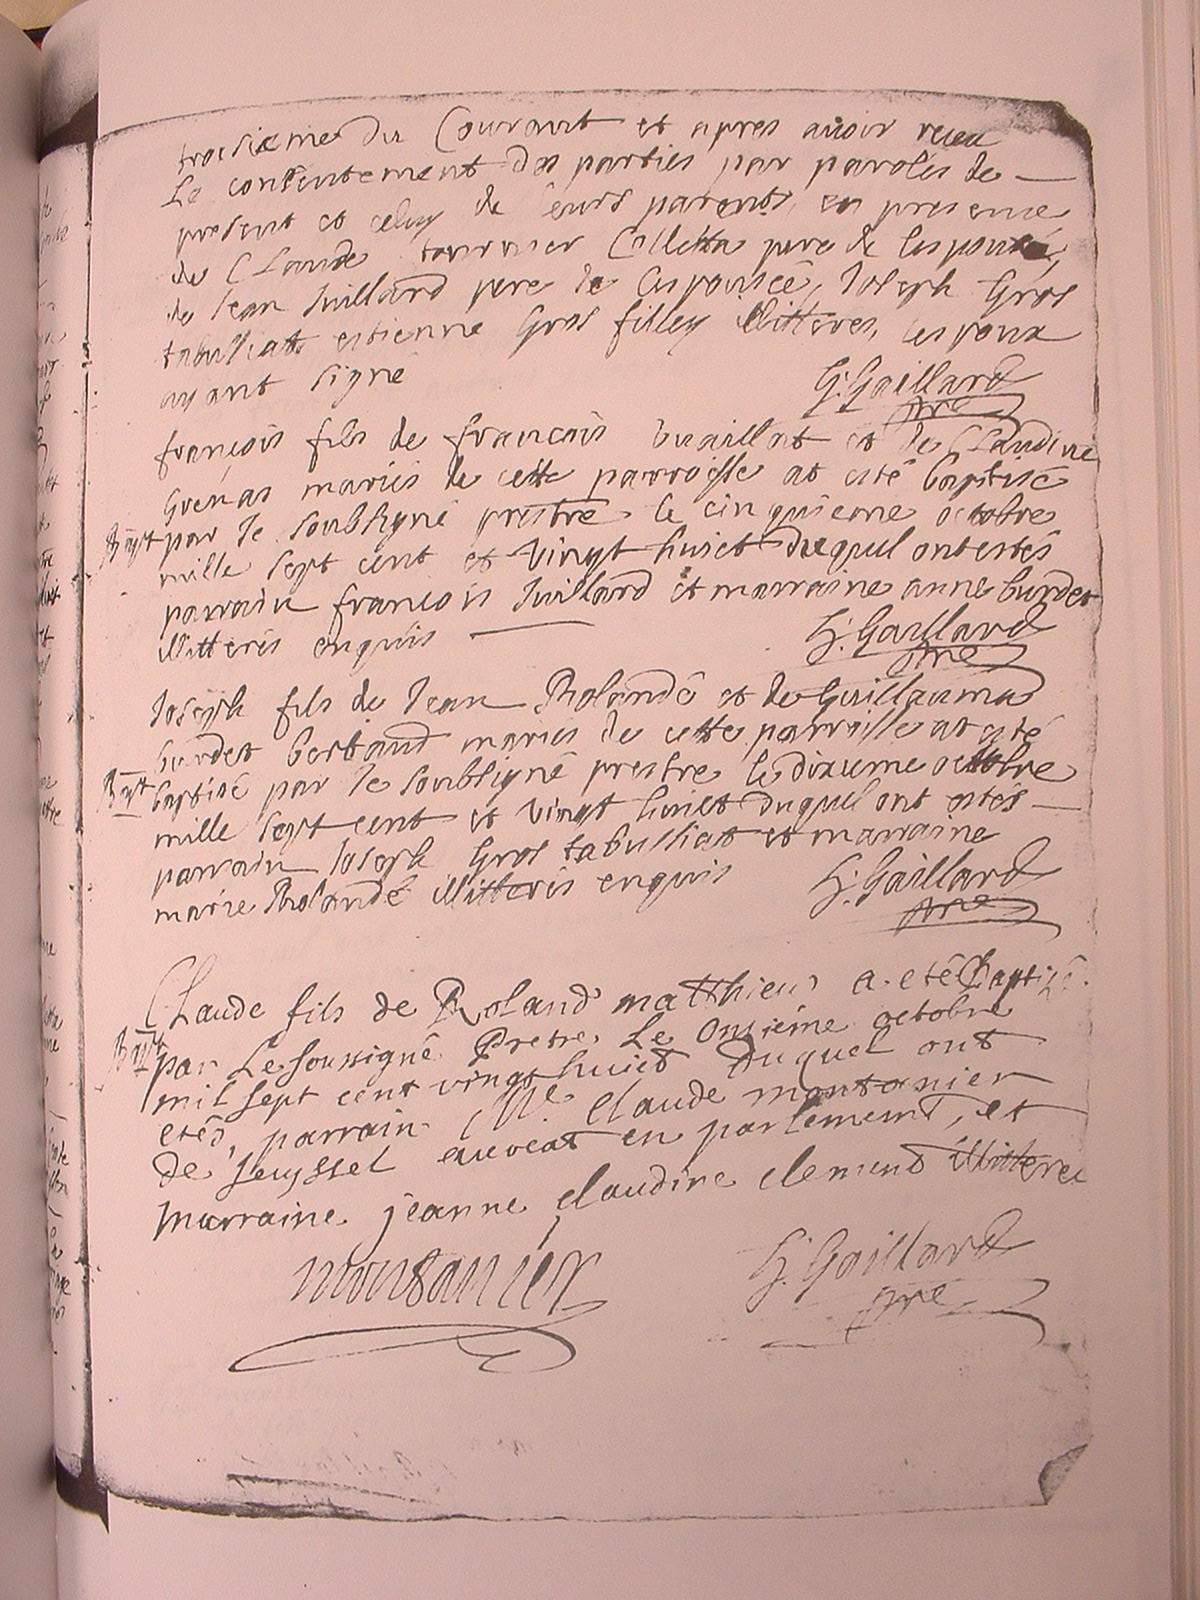 troisieme du Courant et apres avoir receu
Le consentement des parties par paroles de
present et celuy de leurs parents, en presence
de Claude tournier Colletta pere de lespoux,
de Jean Juillard pere de lespousée, Joseph Gros
tabulliat estienne Gros filley illitteres, lespoux
ayant signé
G: Gaillard
pre
françois fils de francois vuaillat et de Claudine
Grenas mariés de cette parroisse at esté baptisé
Bapt par le soubsigné prestre le cinquieme octobre
mille sept cent et vingt huict duquel ont estés
parrain francois Juillard et marraine anne burdet
illitteris enquis
G: Gaillard
pre
Joseph fils de Jean Rolandé et de Guillauma
burdet bertand mariés de cette parroisse at esté
Bapt baptisé par le soubsigné prestre le dixieme octobre
mille sept cent et vingt huict duquel ont estés
parrain Joseph Gros tabulliat et marraine
marie Rolandé illitteris enquis
G: Gaillard
pre
Claude fils de Roland matthieu a eté Baptizé
Bapt par Le soussigné Pretre Le Onsiéme octobre
mil sept cent vingt huict Duquel ont
etés, parrain claude montanier
de seyssel avocat en parlement, et
marraine jeanne claudine clement illitteree
montanier
G: Gaillard
pre